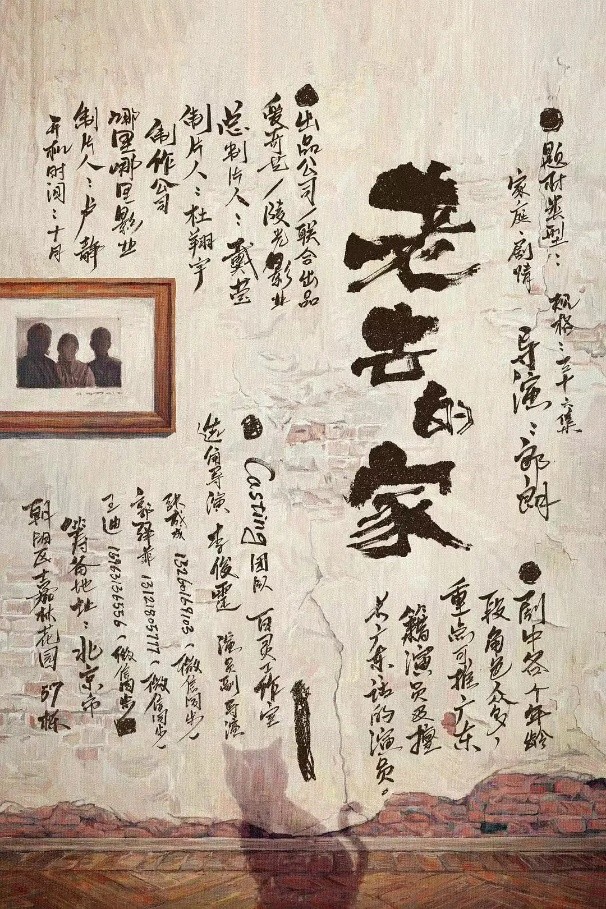 题材类型：
家庭、剧情
规格：三十六集
导演：郭朗
老去的家
剧中各个年龄
段角色众多，
重点可推广东
籍演员及擅
长广东话的演员。
出品公司/联合出品
爱奇艺/陵光影业
总制片人：戴莹
制片人：杜翔宇
制作公司
哪里哪里影业
制片人：卢静
开机时间：十月
Casting团队 百灵工作室
选角导演 李俊霆 演员副导演
13260169103（微信同步）
13121805777（微信同步）
王迪 15963136556（微信同步）
地址：北京市
朝阳区嘉林花园 57栋